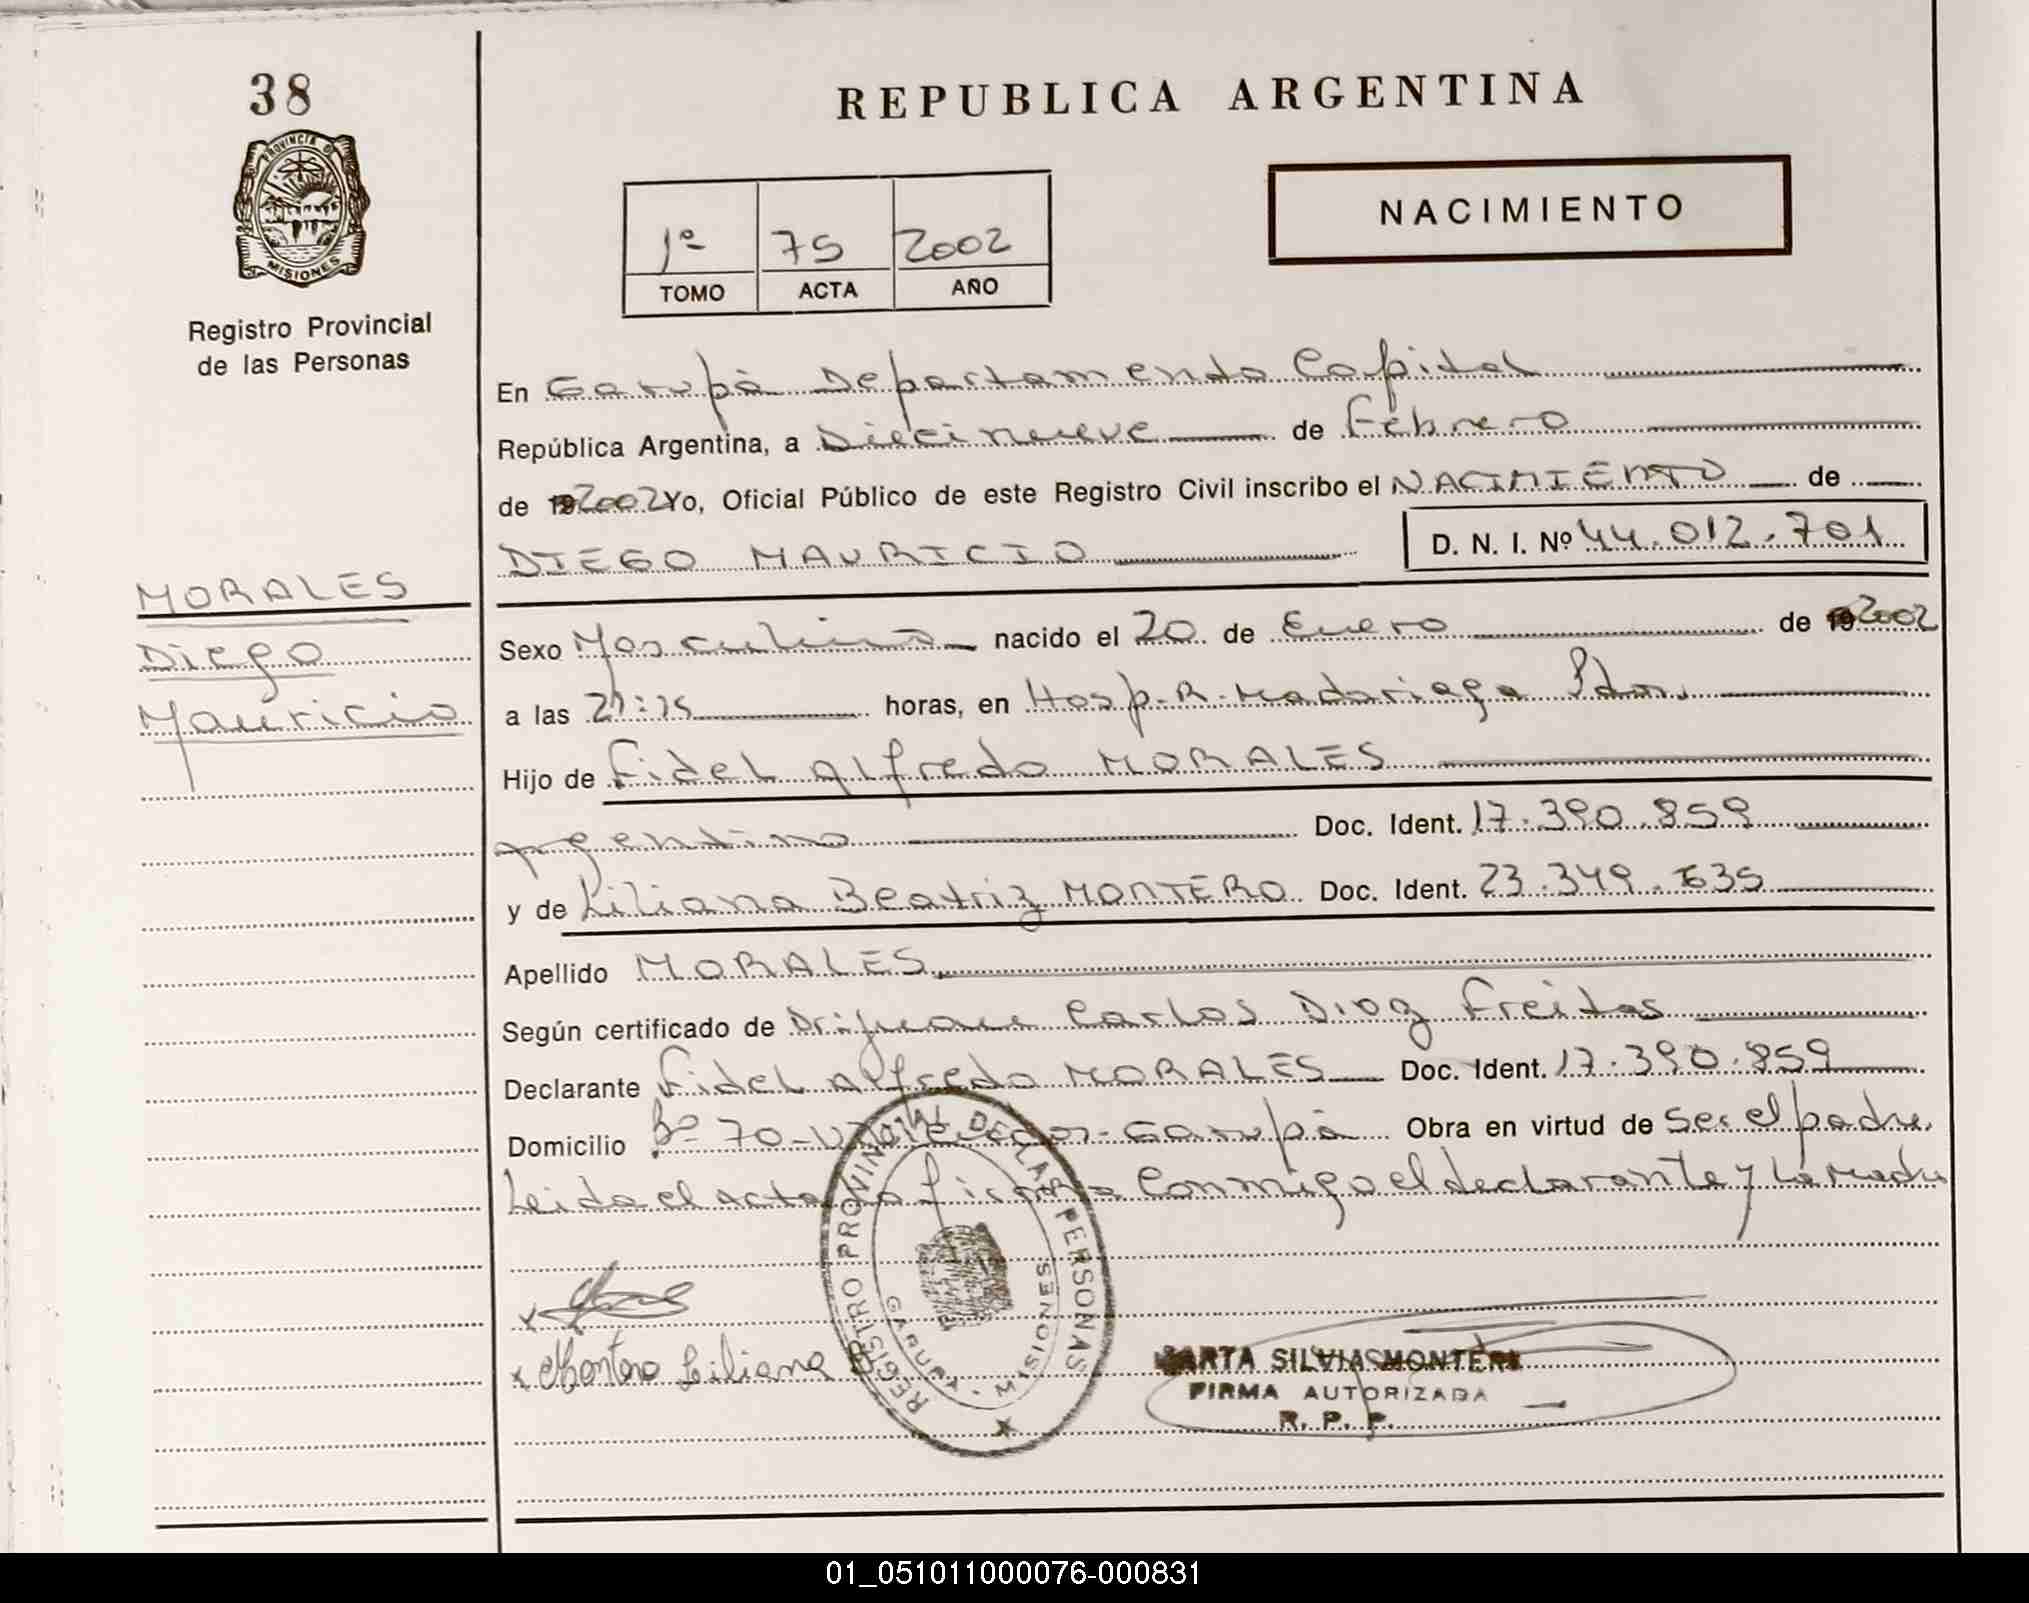 38
REPUBLICA ARGENTINA
PROVINCIA D
MISIONES
Registro Provincial
de las Personas
NACIMIENTO
1º 75 2002
TOMO ACTA AÑO
En Garupá Departamento Capital
República Argentina, a Diecinueve de Febrero
de 2002 Yo, Oficial Público de este Registro Civil inscribo el NACIMIENTO de
DIEGO MAURICIO D. N. I. Nº 44.012.701
MORALES
Diego
Mauricio
Sexo Masculino nacido el 20 de Enero de 2002
a las horas, en Hosp. R. Madariaga Pdas.
Hijo de Fidel Alfredo MORALES
Argentino Doc. Ident. 17.390.859
y de Liliana Beatriz MONTERO Doc. Ident. 23.349.635
Apellido MORALES
Según certificado de Dr. Juan Carlos Diaz Freitas
Declarante Fidel Alfredo MORALES Doc. Ident. 17.390.859
Domicilio Bº 70 Garupá Obra en virtud de ser el padre.
Leida el acta la firma conmigo el declarante y la Madre
x
x Montero Liliana
REGISTRO PROVINCIAL DE LAS PERSONAS
GARUPA - MISIONES
SILVIA MONTERO
FIRMA AUTORIZADA
R. P. P.
01_051011000076-000831